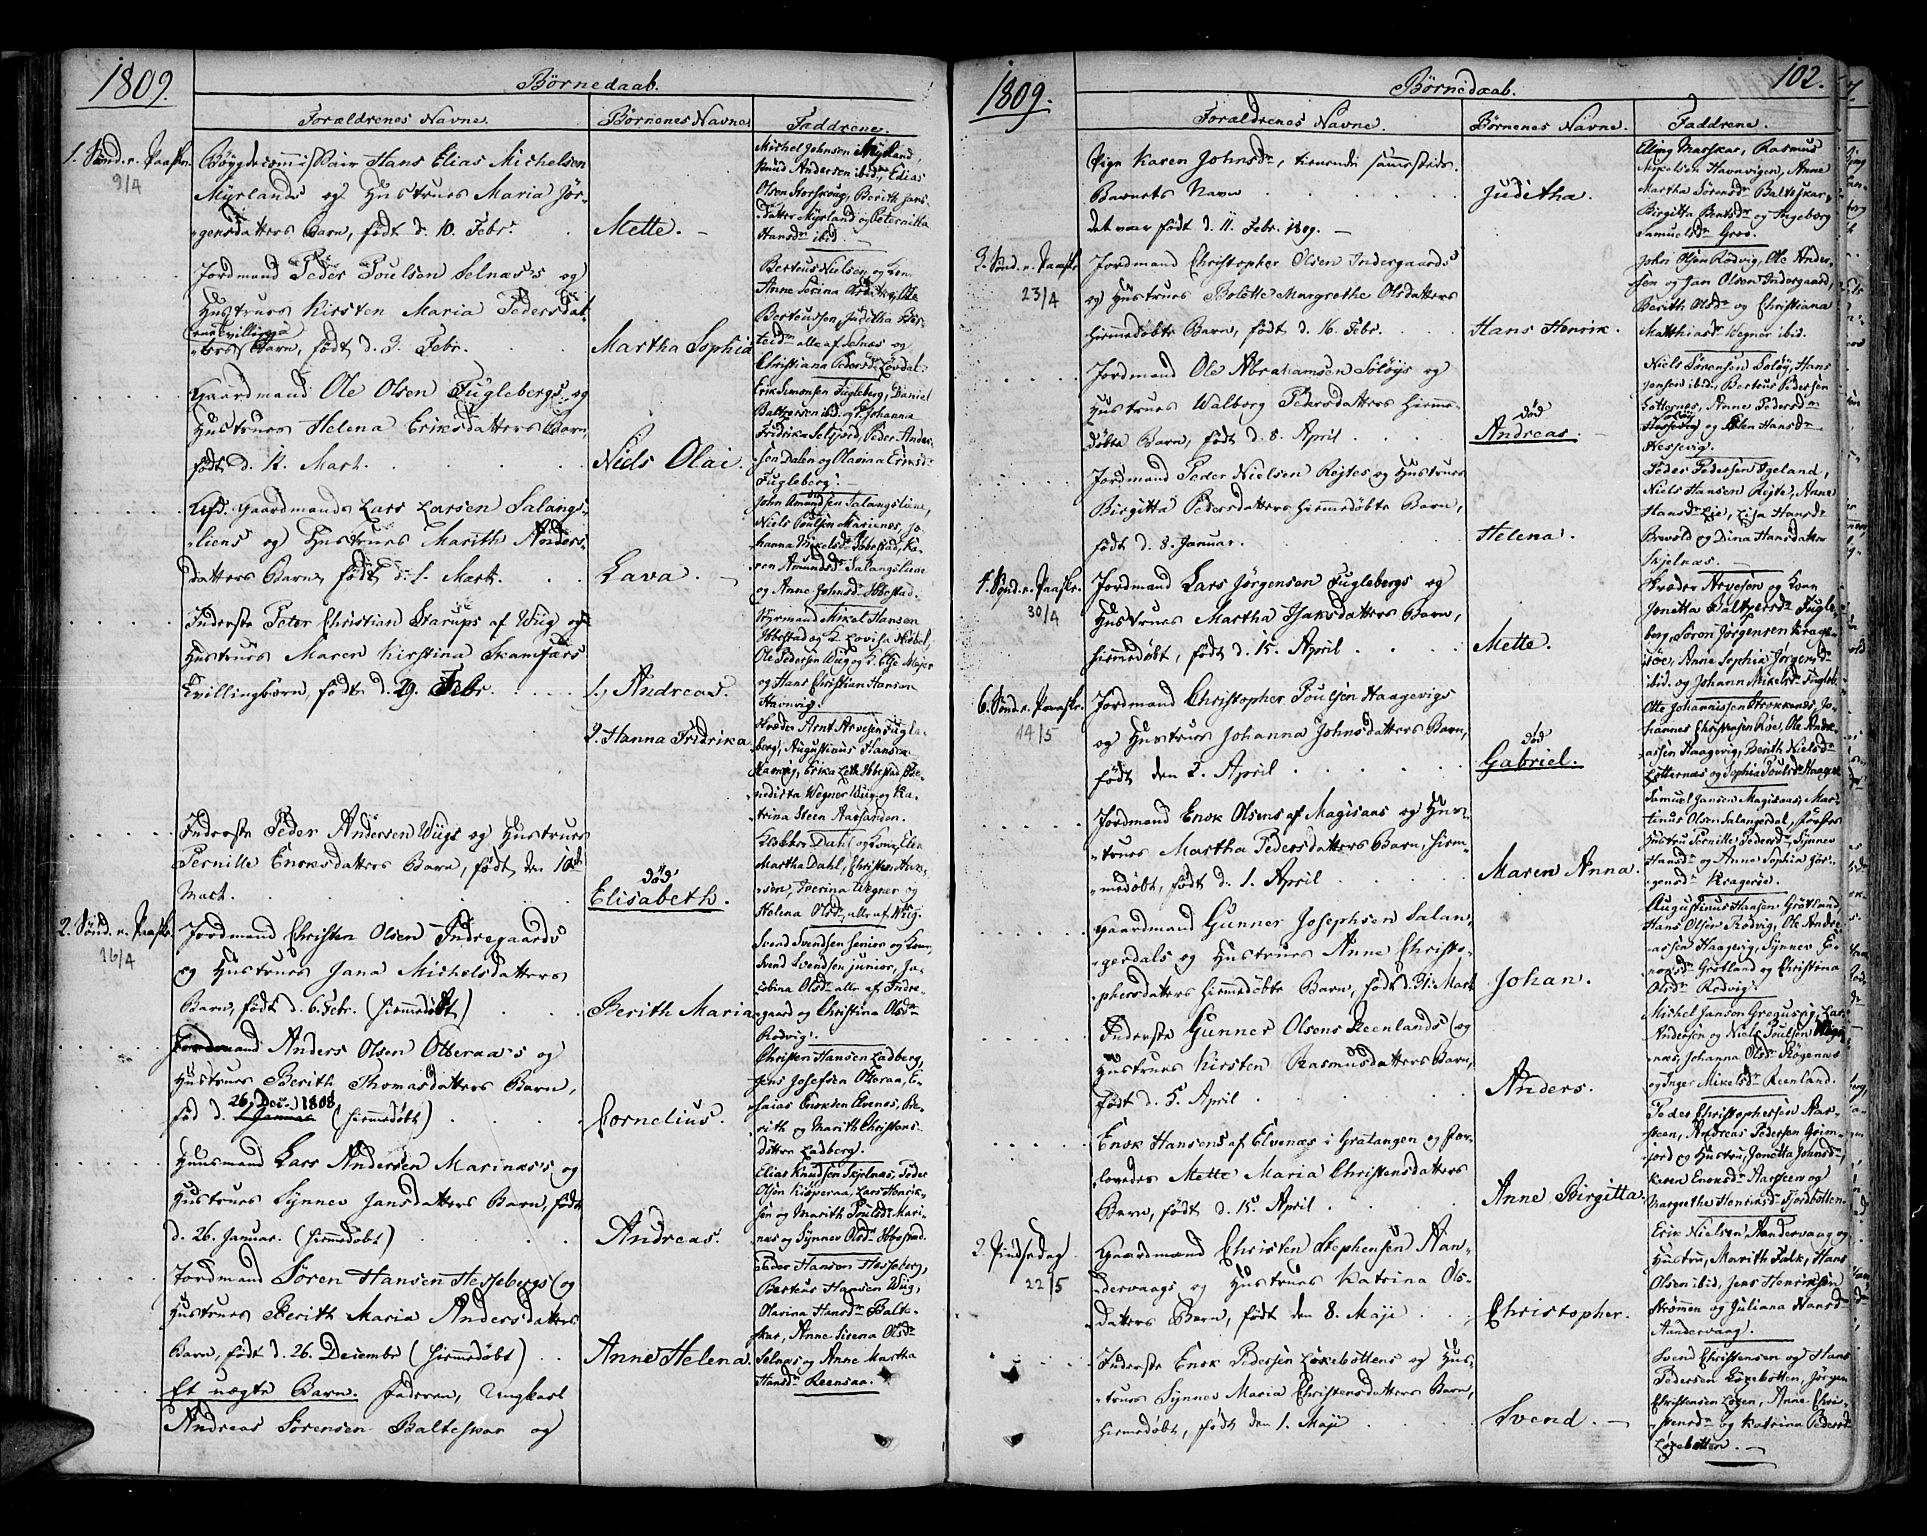 1809.
Børnedaab.
Forældrenes Navne.
Børnenes Navne
Faddrene.
1. Sønd. e. Paaske.
9/4
Bøygdecommissair Hans Elias Michelsen
Myrlands og Hustrues Maria Jør-
gensdatters Barn, født d. 10. Febr.
Mette. —
Michel Johnsen Myrland,
Knud Andersen ibid., Edias
Olsen Storskoug, Berith Jans-
datter Myrland og Peternilla
Hansdr ibid.
Jordmand Peder Poulsen Selnæs's og
Hustrues Kirsten Maria Pedersdat-
ters Barn, født d. 3. Febr.
Martha Sophia
Berteus Nielsen og Kone
Anne Serina
Berteussen, Juditha
alle af Selnæs og
Christiana Pedersdr Løvdal.
Gaardmand Ole Olsen Fuglebergs og
Hustrues Helena Eriksdatters Barn,
født d. 12. Mart.
Niels Olai.
Erik Simonsen Fugleberg, Daniel
Baltzersen ibid. og J. Johanna
Fridrika Setzjord, Peder Ander-
sen Dalen og Olavina Eriksdr
Fugleberg. —
Afd. Gaardmands Lars Larsen Salangs-
liens og Hustrues Marith Anders-
datters Barn, født d. 1. Mart.
Lava. —
John Amundsen Salangslien,
Niels Poulsen Marienæs, Jo-
hanna Mikelsdr Ibbestad, Ka-
ren Amundsdr Salangslien
og Anne Johnsdr Ibbestad.
Inderste Peter Christian Starups af Wiig og
Hustrues Maren Kirstina Skamfærs
Tvillingbørn, født d. 29. Febr.
1.) Andreas.
2. Hanna Fridrika
Styrmand Mikal Hansen
Ibbestad og J. Lovisa
Ole Pedersen Wiig og J. Else Meyer
og Hans Christian Hansen
Havnvig.
Kræder Arnt Arvesen Fugle-
berg, Augustinus Hansen
Hamvig, Erika Leth Ibbestad, Be-
nedicta Wegner Wiig og Ka-
trina Steen Aassanden.
Inderste Peder Andersen Wiigs og Hustrues
Pernille Enoksdatters Barn, født den 10de
Mart.
død
Elisabeth.
Klokker Dahl og Kone Elen
Martha Dahl, Christen Han-
sen, Iverina Wegner og
Helena Olsdr, alle af Wiig.
2. Sønd. e. Paaske
16/4
Jordmand Christen Olsen Indregaards
og Hustrues Jana Michelsdatters
Barn, født d. 6. Febr. (hiemmedøbt)
Berith Maria
Svend Svendsen senior og Kone,
Svend Svendsen junior, Ja-
cobina Olsdr alle af Indre-
gaard og Christina Olsdr
Rødvig.
Jordmand Anders Olsen Otteraa's og
Hustrues Berith Thomasdatters Barn,
26. Dec. 1808
fød d. 1. Januar (hiemmedøbt)
Cornelius.
Christen Hansen Ladberg,
Jens Josefsen Otteraa, E-
saias Enoksen Elvenes, Be-
rith og Marith Christens-
døttre Ladberg.
Huusmand Lars Andersen Marinæs's og
Hustrues Synnev Jansdatters Barn, født
d. 26. Januar. (hiemmedøbt)
Andreas.
Elias Knudsen Skjelnæs, Peder
Olsen Kiøperaa, Lars Henrik-
sen og Marith Poulsdr Mari-
næs og Synnev Olsdr Ibbestad.
Jordmand Søren Hansen Hessebergs og
Hustrues Berith Maria Andersdatters
Barn, født d. 26. Decembr (hiemmedøbt)
Anne Helena.
Peder Hansen Hesseberg,
Berteus Hansen Wiig,
Olavina Hansdr Balte-
skar, Anne Sirena Olsdr
Selnæs og Anne Martha
Hansdr Reensaa.
Et uægte Barn. Faderen, Ungkarl
Andreas Sørensen Balteskar og
1809.
Børnedaab.
102.
Forældrenes Navne.
Børnenes Navne.
Faddrene.
Pige Karen Johnsdr, tienende sammesteds.
Barnets Navn
det var født d. 11. Febr. 1809. —
Juditha.
Elling Maaskar, Rasmus
Mikelsen Havnvigen, Anne
Martha Sørensdr Balteskar,
Birgitta Bentsdr og Ingeborg
Samuelsdr Grov.
3. Sønd. e. Paaske
23/4
Jordmand Christopher Olsen Indergaards
og Hustrues Bolette Margrethe Olsdatters
hiemmedøbte Barn, født d. 16. Febr.
Hans Henrik.
John Olsen Rødvig, Ole Ander-
sen og Jan Olsen Indergaard,
Berith Olsdr og Christiana
Matthiasdr Wegner ibid.
Jordmand Ole Abrahamsen Soløys og
Hustrues Walborg Pedersdatters hiemme-
døbte Barn, født d. 8. April
død
Andreas.
Niels Sørensen Soløy, Hans
Jensen ibid., Berteus Pedersen
Løtternes, Anne Pedersdr
Soløy
Hessevig og Elen Hansdr
Hessevig.
Jordmand Peder Nielsen Røjtes og Hustrues
Birgitta Pedersdatters hiemmedøbte Barn,
født d. 8. Januar.
Helena.
Peder Pedersen Ygeland,
Niels Hansen Røjte, Anne
Hansdr Lie, Lisa Hansdr
Brevold og Dina Hansdatter
Skjelnæs.
4. Sønd. e. Paaske.
30/4
Jordmand Lars Jørgensen Fuglebergs og
Hustrues Martha Isaksdatters Barn,
hiemmedøbt, født d. 15. April
Mette.
Kræder Arvesen og Kone
Jonetta Baltzersdr Fugle-
berg, Søren Jørgensen Krage-
røe, Anne Sophia Jørgensdr
ibid. og Johanna Mikelsdr Fugleb.
6. Sønd. e. Paaske.
14/5
Jordmand Christopher Poulsen Haagevigs
og Hustrues Johanna Johnsdatters Barn,
født den 5. April
død
Gabriel.
Otte Johannissen Strokkenæs, Jo-
hannes Christensen Røe, Ole Andre-
assen Haagevig, Berith Nielsdr
Løtternæs og Sophia Poulsdr Haagev.
Jordmand Enok Olsens af Magisaas og Hus-
trues Martha Pedersdatters Barn, hiem-
medøbt, født d. 1. April
Maren Anna.
Samuel Jansen Magisaas, Mar-
tinus Olsen Salangsdal,
Hustru Pernille Pedersdr, Synnev
Hansdr og Anne Sophia Jør-
gensdr Kragerøe.
Gaardmand Gunner Josephsen Salan-
gerdals og Hustrues Anne Christo-
phersdatters hiemmedøbte Barn, født d. 31. Mart
Johan.
Augustinus Hansen Grøtland,
Hans Olsen Rødvig, Ole Andre-
assen Haagevig, Synnev E-
noksdr Grøtland og Christina
Olsdr Rødvig.
Inderste Gunner Olsens Reenlands og
Hustrues Kirsten Rasmusdatters Barn,
født d. 5. April
Anders.
Michel Jansen Gregusvig, Lars
Andersen og Niels Poulsen
næs, Johanna Olsdr Røgenæs
og Inger Mikelsdr Reenland.
Enok Hansens af Elvenæs i Gratangen og for-
lovedes Mette Maria Christensdatters
Barn, født d. 15. April
Anne Birgitta.
Peder Christophersen Aar-
steen, Andreas Pedersen Grim-
jord og Hustru, Jonetta Johnsdr,
Karen Enoksdr Aarsteen og
Margrethe Henriksdr Fjordbotten.
2. Pindsedag.
22/5
Gaardmand Christen Stephensen Aan-
dervaags og Hustrues Katrina Ols-
datters Barn, født den 8. Maji
Christopher.
Erik Nielsen Aandervaag og
Hustru, Marith Falk, Hans
Olsen ibid, Jens Henriksen
Strømmen og Juliana Hansdr
Aandervaag.
Inderste Enok Pedersen Løxebottens og Hus-
trues Synnev Maria Christensdatters Barn,
hiemmedøbt, født den 1. Maji
Svend. —
Svend Christensen og Hans
Pedersen Løxebotten, Jørgen
Christensen Løxen, Anne Chri-
stensdr og Katrina Pedersdr
Løxebotten. —